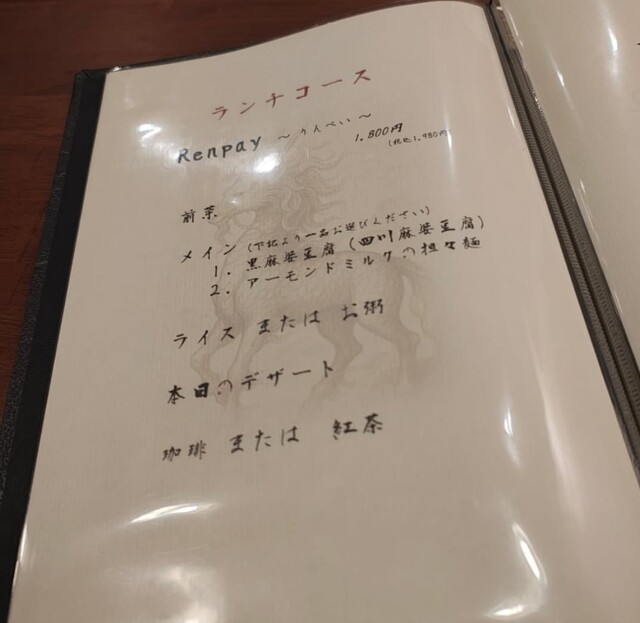 ランチコース
Renpay ~りんぺい~ 1,800円
(税込1,980円)
前菜
メイン (下記より一品お選びください)
1. 黒麻婆豆腐 (四川麻婆豆腐)
2. アーモンドミルクの担々麺
ライス または お粥
本日のデザート
珈琲 または 紅茶